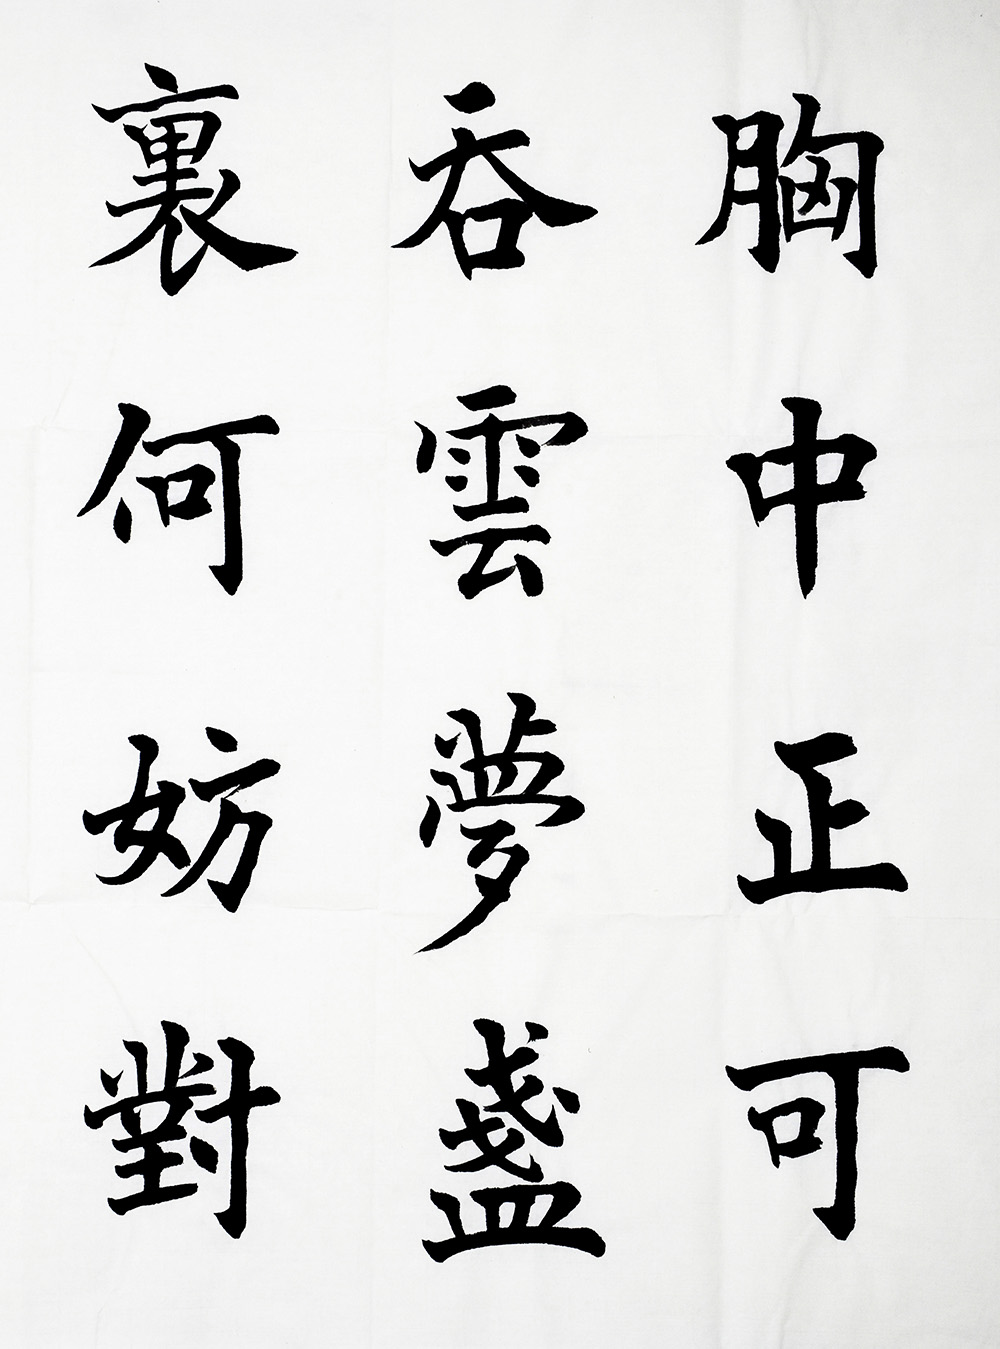 胸中正可
吞雲夢盞
裏何妨對